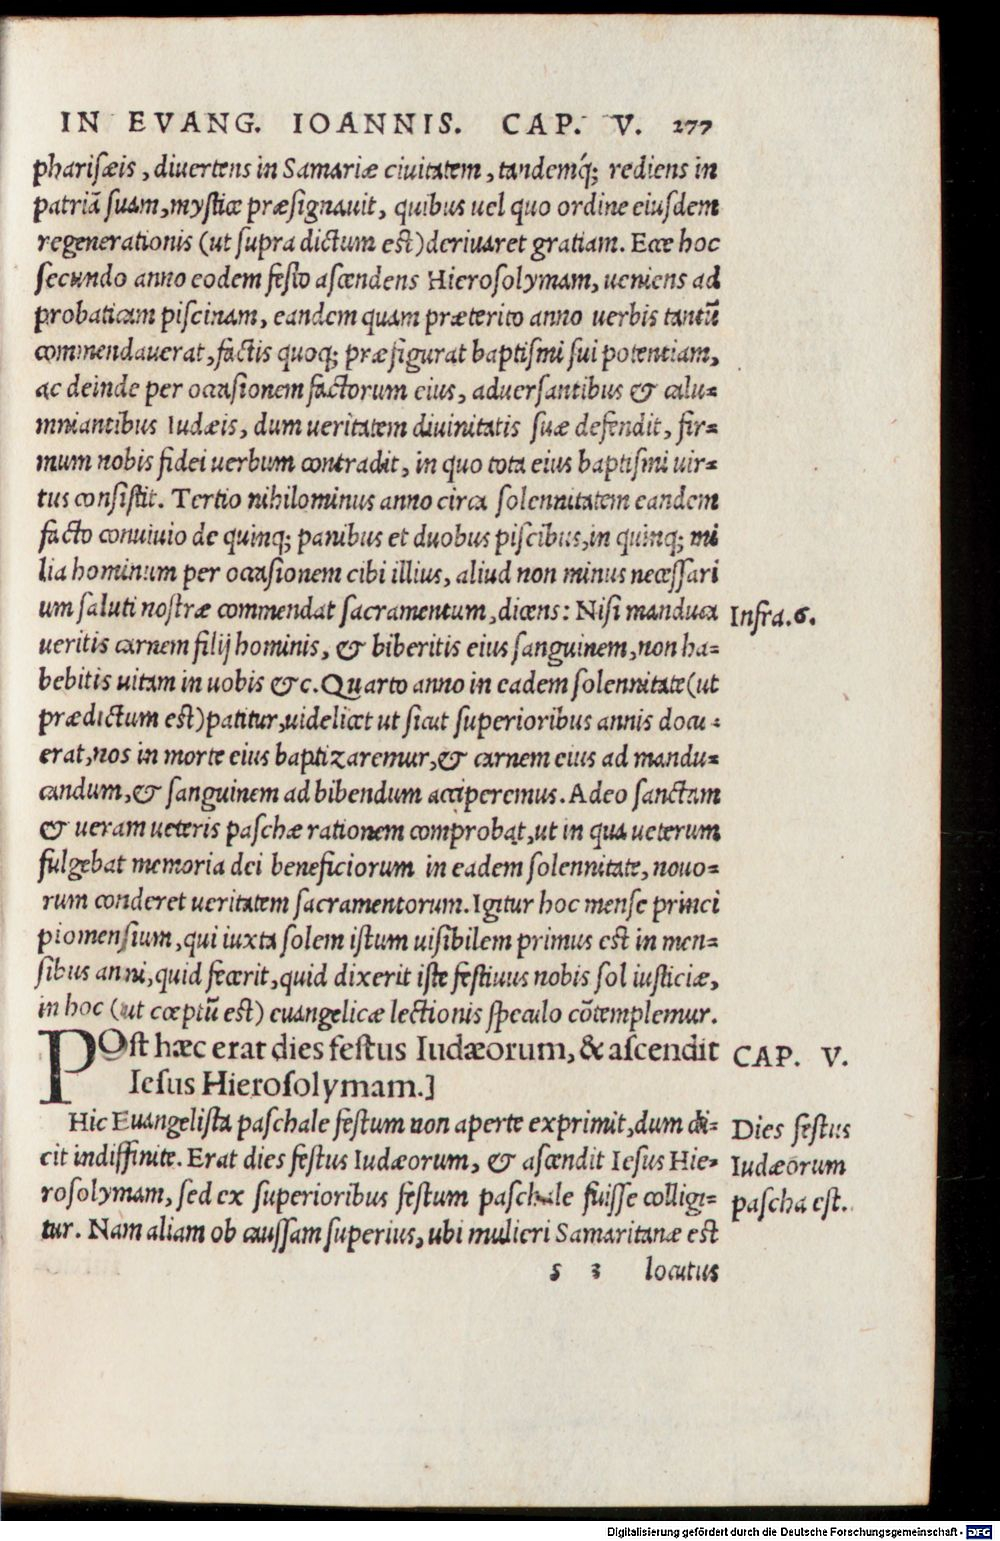 IN EVANG. IOANNIS. CAP. V. 277
phariſæis, diuertens in Samariæ ciuitatem, tandemq́; rediens in
patriā ſuam, myſtice præſignauit, quibus uel quo ordine eiuſdem
regenerationis (ut ſupra dictum eſt) deriuaret gratiam. Ecce hoc
ſecundo anno eodem feſto aſcendens Hieroſolymam, ueniens ad
probaticam piſcinam, eandem quam præterito anno uerbis tantū
commendauerat, factis quoq; præfigurat baptiſmi ſui potentiam,
ac deinde per occaſionem factorum eius, aduerſantibus & calu=
mniantibus Iudæis, dum ueritatem diuinitatis ſuæ defendit, fir=
mum nobis fidei uerbum contradit, in quo tota eius baptiſmi uir=
tus conſiſtit. Tertio nihilominus anno circa ſolennitatem eandem
facto conuiuio de quinq; panibus et duobus piſcibus, in quinq; mi
lia hominum per occaſionem cibi illius, aliud non minus neceſſari
um ſaluti noſtræ commendat ſacramentum, dicens: Niſi manduca
Infra. 6.
ueritis carnem filij hominis, & biberitis eius ſanguinem, non ha=
bebitis uitam in uobis &c. Quarto anno in eadem ſolennitate (ut
prædictum eſt) patitur, uidelicet ut ſicut ſuperioribus annis docu=
erat, nos in morte eius baptizaremur, & carnem eius ad mandu=
candum, & ſanguinem ad bibendum acciperemus. Adeo ſanctam
& ueram ueteris paſchæ rationem comprobat, ut in qua ueterum
fulgebat memoria dei beneficiorum in eadem ſolennitate, nouo=
rum conderet ueritatem ſacramentorum. Igitur hoc menſe princi
piomenſium, qui iuxta ſolem iſtum uiſibilem primus eſt in men=
ſibus anni, quid fecerit, quid dixerit iſte feſtiuus nobis ſol iuſticiæ,
in hoc (ut cœptū eſt) euangelicæ lectionis ſpeculo cōtemplemur.
POſt hæc erat dies feſtus Iudæorum, & aſcendit
CAP. V.
Ieſus Hieroſolymam.]
Hic Euangeliſta paſchale feſtum non aperte exprimit, dum di=
Dies feſtus
cit indiffinite. Erat dies feſtus Iudæorum, & aſcendit Ieſus Hie=
Iudæorum
roſolymam, ſed ex ſuperioribus feſtum paſchale fuiſſe colligi=
paſcha eſt.
tur. Nam aliam ob cauſſam ſuperius, ubi mulieri Samaritanæ eſt
s 3 locutus
Digitalisierung gefördert durch die Deutsche Forschungsgemeinschaft - DFG